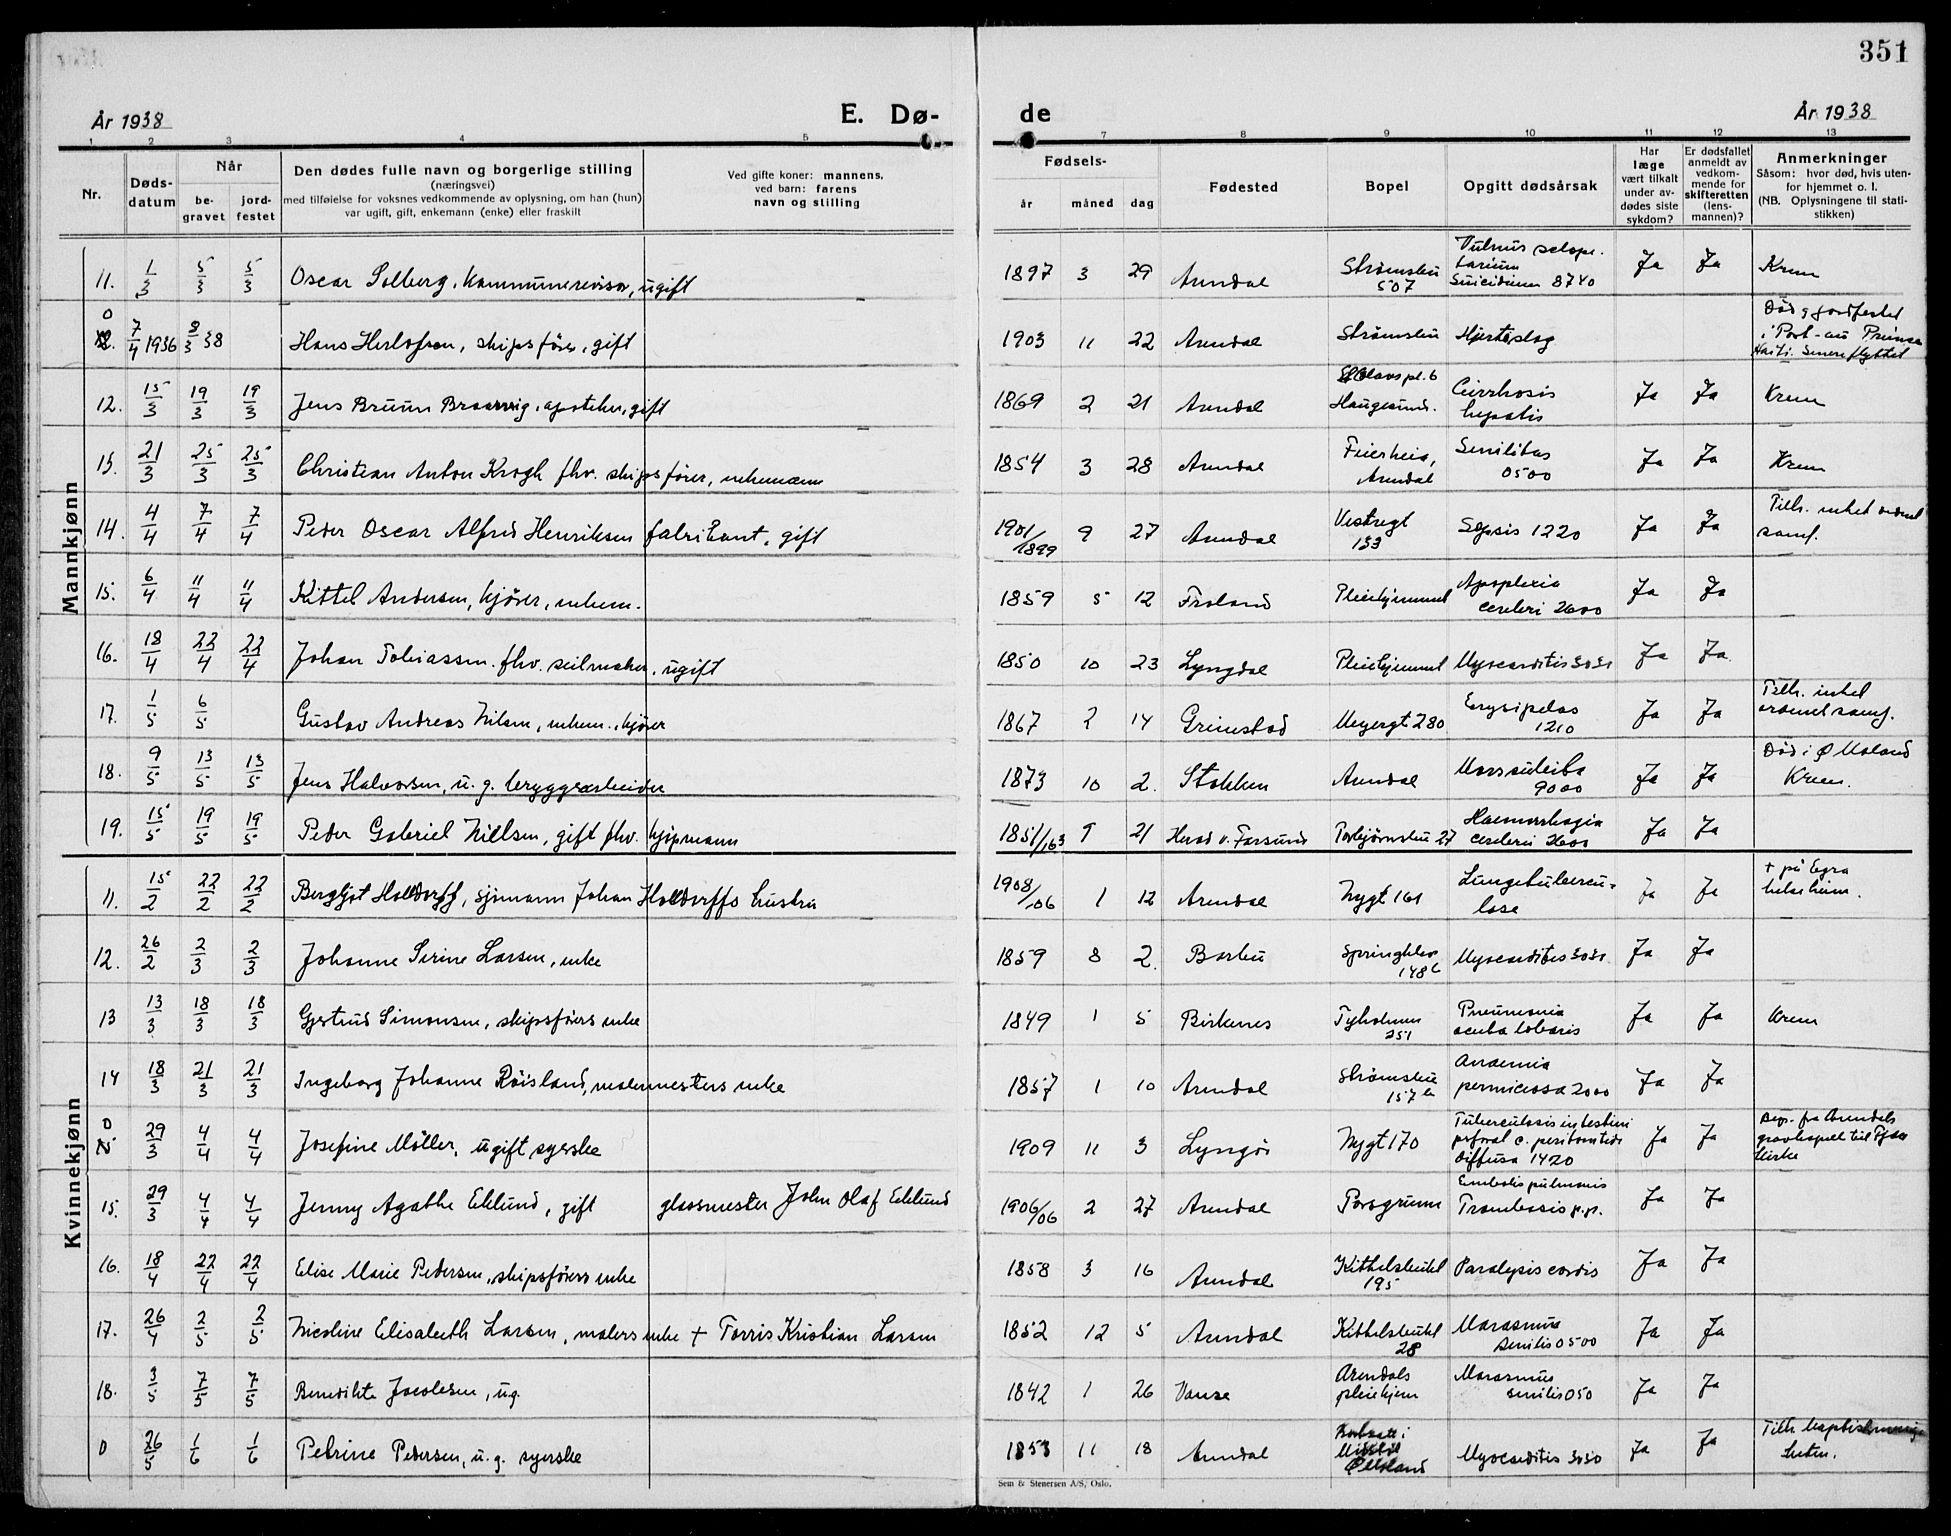 351
År 1938 E. Dø- de År 1938
1 2 3 4 5 7 8 9 10 11 12 13
Nr.
Døds-
datum
Når
be-
gravet
jord-
festet
Den dødes fulle navn og borgerlige stilling
(næringsvei)
med tilføielse for voksnes vedkommende av oplysning, om han (hun)
var ugift, gift, enkemann (enke) eller fraskilt
Ved gifte koner: mannens,
ved barn: farens
navn og stilling
Fødsels-
år måned dag
Fødested
Bopel
Opgitt dødsårsak
Har
læge
vært tilkalt
under av-
dødes siste
sykdom?
Er dødsfallet
anmeldt av
vedkom-
mende for
skifteretten
(lens-
mannen)?
Anmerkninger
Såsom: hvor død, hvis uten-
for hjemmet o. l.
(NB. Oplysningene til stati-
stikken)
Mannkjønn
11. 1/3 5/3 5/3 Oscar Solberg, kommunerevisor, ugift 1897 3 29 Arendal Strømsbu 507 Vulnus sclopetarium Suicidium 8740 Ja Ja Krem
0 7/4 1936 8/3 38 Hans Herlofsen, skipsfører, gift 1903 11 22 Arendal Strømsbu Hjerteslag Død og jordfestet i Port-au Prince Haiti. Senere flyttet
12. 15/3 19/3 19/3 Jens Bruun Braarvig, apoteker, gift 1869 2 21 Arendal St Olavs pl. 6 Haugesund. Cirrhosis hepatis Ja Ja Krem
13. 21/3 25/3 25/3 Christian Anton Krogh fhv. skipsfører, enkemann 1854 3 28 Arendal Feierheia, Arendal Senilitas 0500 Ja Ja Krem
14. 4/4 7/4 7/4 Peder Oscar Alfred Henriksen fabrikant, gift 1901/1899 9 27 Arendal Vestregt 133 Sepsis 1220 Ja Ja Tilh. intet ordnet samf.
15. 6/4 11/4 11/4 Kittel Andersen, kjører, enkem. 1859 5 12 Froland Pleiehjemmet Apoplexia cerebri 2600 Ja Ja
16. 18/4 22/4 22/4 Johan Tobiassen. fhv. seilmaker, ugift 1850 10 23 Lyngdal Pleiehjemmet Myocarditis 3030 Ja Ja
17. 1/5 6/5 Gustav Andreas Nilsen, enkem., kjører 1867 2 14 Grimstad Meyergt 280 Erysipelas 1210 Ja Ja Tilh. intet ordnet samf.
18. 9/5 13/5 13/5 Jens Halvorsen, u. g. bryggearbeider 1873 10 2. Stokken Arendal Mors subita 9000 Ja Ja Død i Ø Moland Krem.
19. 15/5 19/5 19/5 Peder Gabriel Nielsen, gift fhv. kjøpmann 1851/163 9 21 Herad v. Farsund Torbjørnsbu 27 Haemorrhagia cerebri 2600 Ja Ja
Kvinnekjønn
11. 15/2 22/2 22/2 Bergljot Holldorff, sjømann Johan Holldorffs hustru 1908/06 1 12 Arendal Nygt 161 Lungetuberculose Ja Ja + på Egra helseheim.
12. 26/2 2/3 2/3 Johanne Serine Larsen, enke 1859 8 2. Barbu 148 Myocarditis 3030 Ja Ja
13 13/3 18/3 18/3 Gjertrud Simonsen, skipsførers enke 1849 1 5 Birkenes Tyholmen 251 Pneumonia acuta lobaris Ja Ja Krem
14 18/3 21/3 21/3 Ingeborg Johanne Røisland, malermesters enke 1857 1 10 Arendal Strømsbu 157 Anaemia perniciosa 2000 Ja Ja
0 29/3 4/4 4/4 Josefine Möller, ugift syerske 1909 11 3 Lyngør Nygt 170 Tuberculosis intestini perforat c. peritonitide diffusa 1420 Ja Ja fra Arendals gravkapell til kirke
15. 29/3 4/4 4/4 Jenny Agathe Eklund, gift glassmester John Olaf Eklund 1906/06 2 27 Arendal Porsgrunn Embolis pulmonis Trombosis p.p. Ja Ja
16. 18/4 22/4 22/4 Elise Marie Pedersen, skipsførers enke 1858 3 16 Arendal Kittelsbukt 195 Paralysis cordis Ja Ja
17. 26/4 2/5 2/5 Nicoline Elisabeth Larsen, malers enke + Torris Kristian Larsen 1852 12 5 Arendal Kittelsbukt 28 Marasmus senilis 0500 Ja Ja
18. 3/5 7/5 7/5 Benedikte Jacobsen, ug. 1842 1 26 Vanse Arendals pleiehjem Marasmus senilis 050 Ja Ja
0 26/5 1/6 1/6 Petrine Pedersen, u. g. syerske 1853 11 18 Arendal Ø Moland Myocarditis 3030 Ja Ja Tilh.
Sem & Stenersen A/S, Oslo.